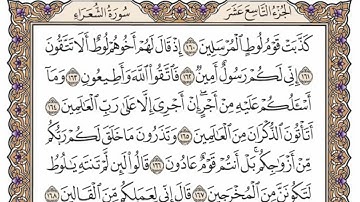 الجزء التاسع عشر سورة الشعراء
كَذَّبَتْ قَوْمُ لُوطٍ الْمُرْسَلِينَ ١٦٠ إِذْ قَالَ لَهُمْ أَخُوهُمْ لُوطٌ أَلَا تَتَّقُونَ
١٦١ إِنِّي لَكُمْ رَسُولٌ أَمِينٌ ١٦٢ فَاتَّقُوا اللَّهَ وَأَطِيعُونِ ١٦٣ وَمَا
أَسْـَٔلُكُمْ عَلَيْهِ مِنْ أَجْرٍ إِنْ أَجْرِيَ إِلَّا عَلَىٰ رَبِّ الْعَالَمِينَ ١٦٤
أَتَأْتُونَ الذُّكْرَانَ مِنَ الْعَالَمِينَ ١٦٥ وَتَذَرُونَ مَا خَلَقَ لَكُمْ رَبُّكُم
مِّنْ أَزْوَاجِكُم بَلْ أَنتُمْ قَوْمٌ عَادُونَ ١٦٦ قَالُوا لَئِن لَّمْ تَنتَهِ يَا لُوطُ
لَتَكُونَنَّ مِنَ الْمُخْرَجِينَ ١٦٧ قَالَ إِنِّي لِعَمَلِكُم مِّنَ الْقَالِينَ ١٦٨